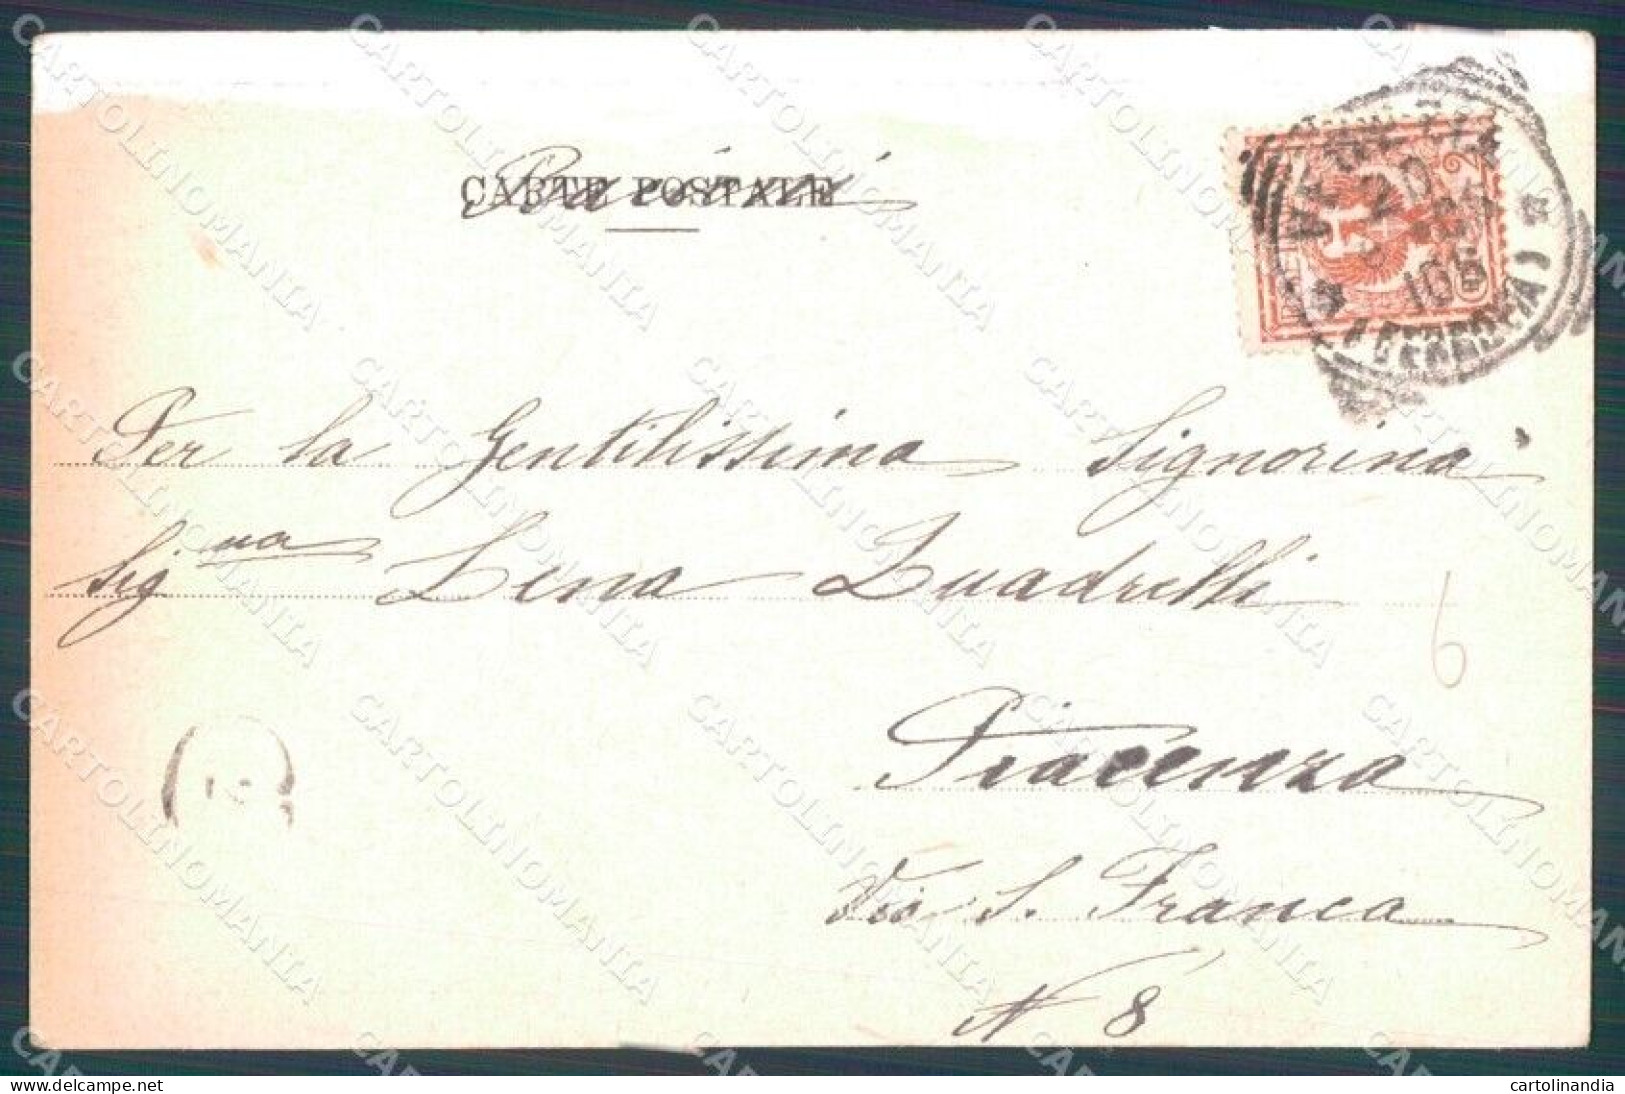 CARTE POSTALE
Per la Gentilissima Signorina
Sig.na Lena Quadrelli
Piacenza
Via S. Franca
N 8
6
CARTOLINOMANIA
cartolinandia